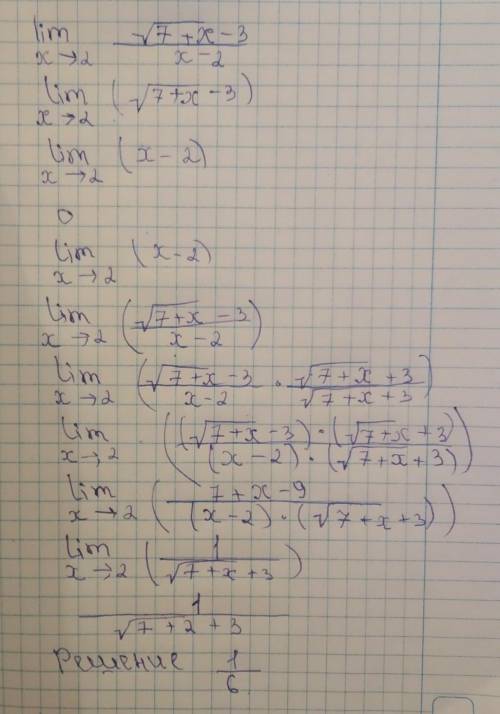 lim x→2 (√(7+x) - 3)/(x-2)
lim x→2 (√(7+x) - 3)
lim x→2 (x-2)
0
lim x→2 (x-2)
lim x→2 ((√(7+x) - 3)/(x-2))
lim x→2 ((√(7+x) - 3)/(x-2) · (√(7+x) + 3)/(√(7+x) + 3))
lim x→2 (((√(7+x) - 3) · (√(7+x) + 3))/((x-2) · (√(7+x) + 3)))
lim x→2 ((7+x-9)/((x-2) · (√(7+x) + 3)))
lim x→2 (1/(√(7+x) + 3))
1/(√(7+2) + 3)
Решение 1/6